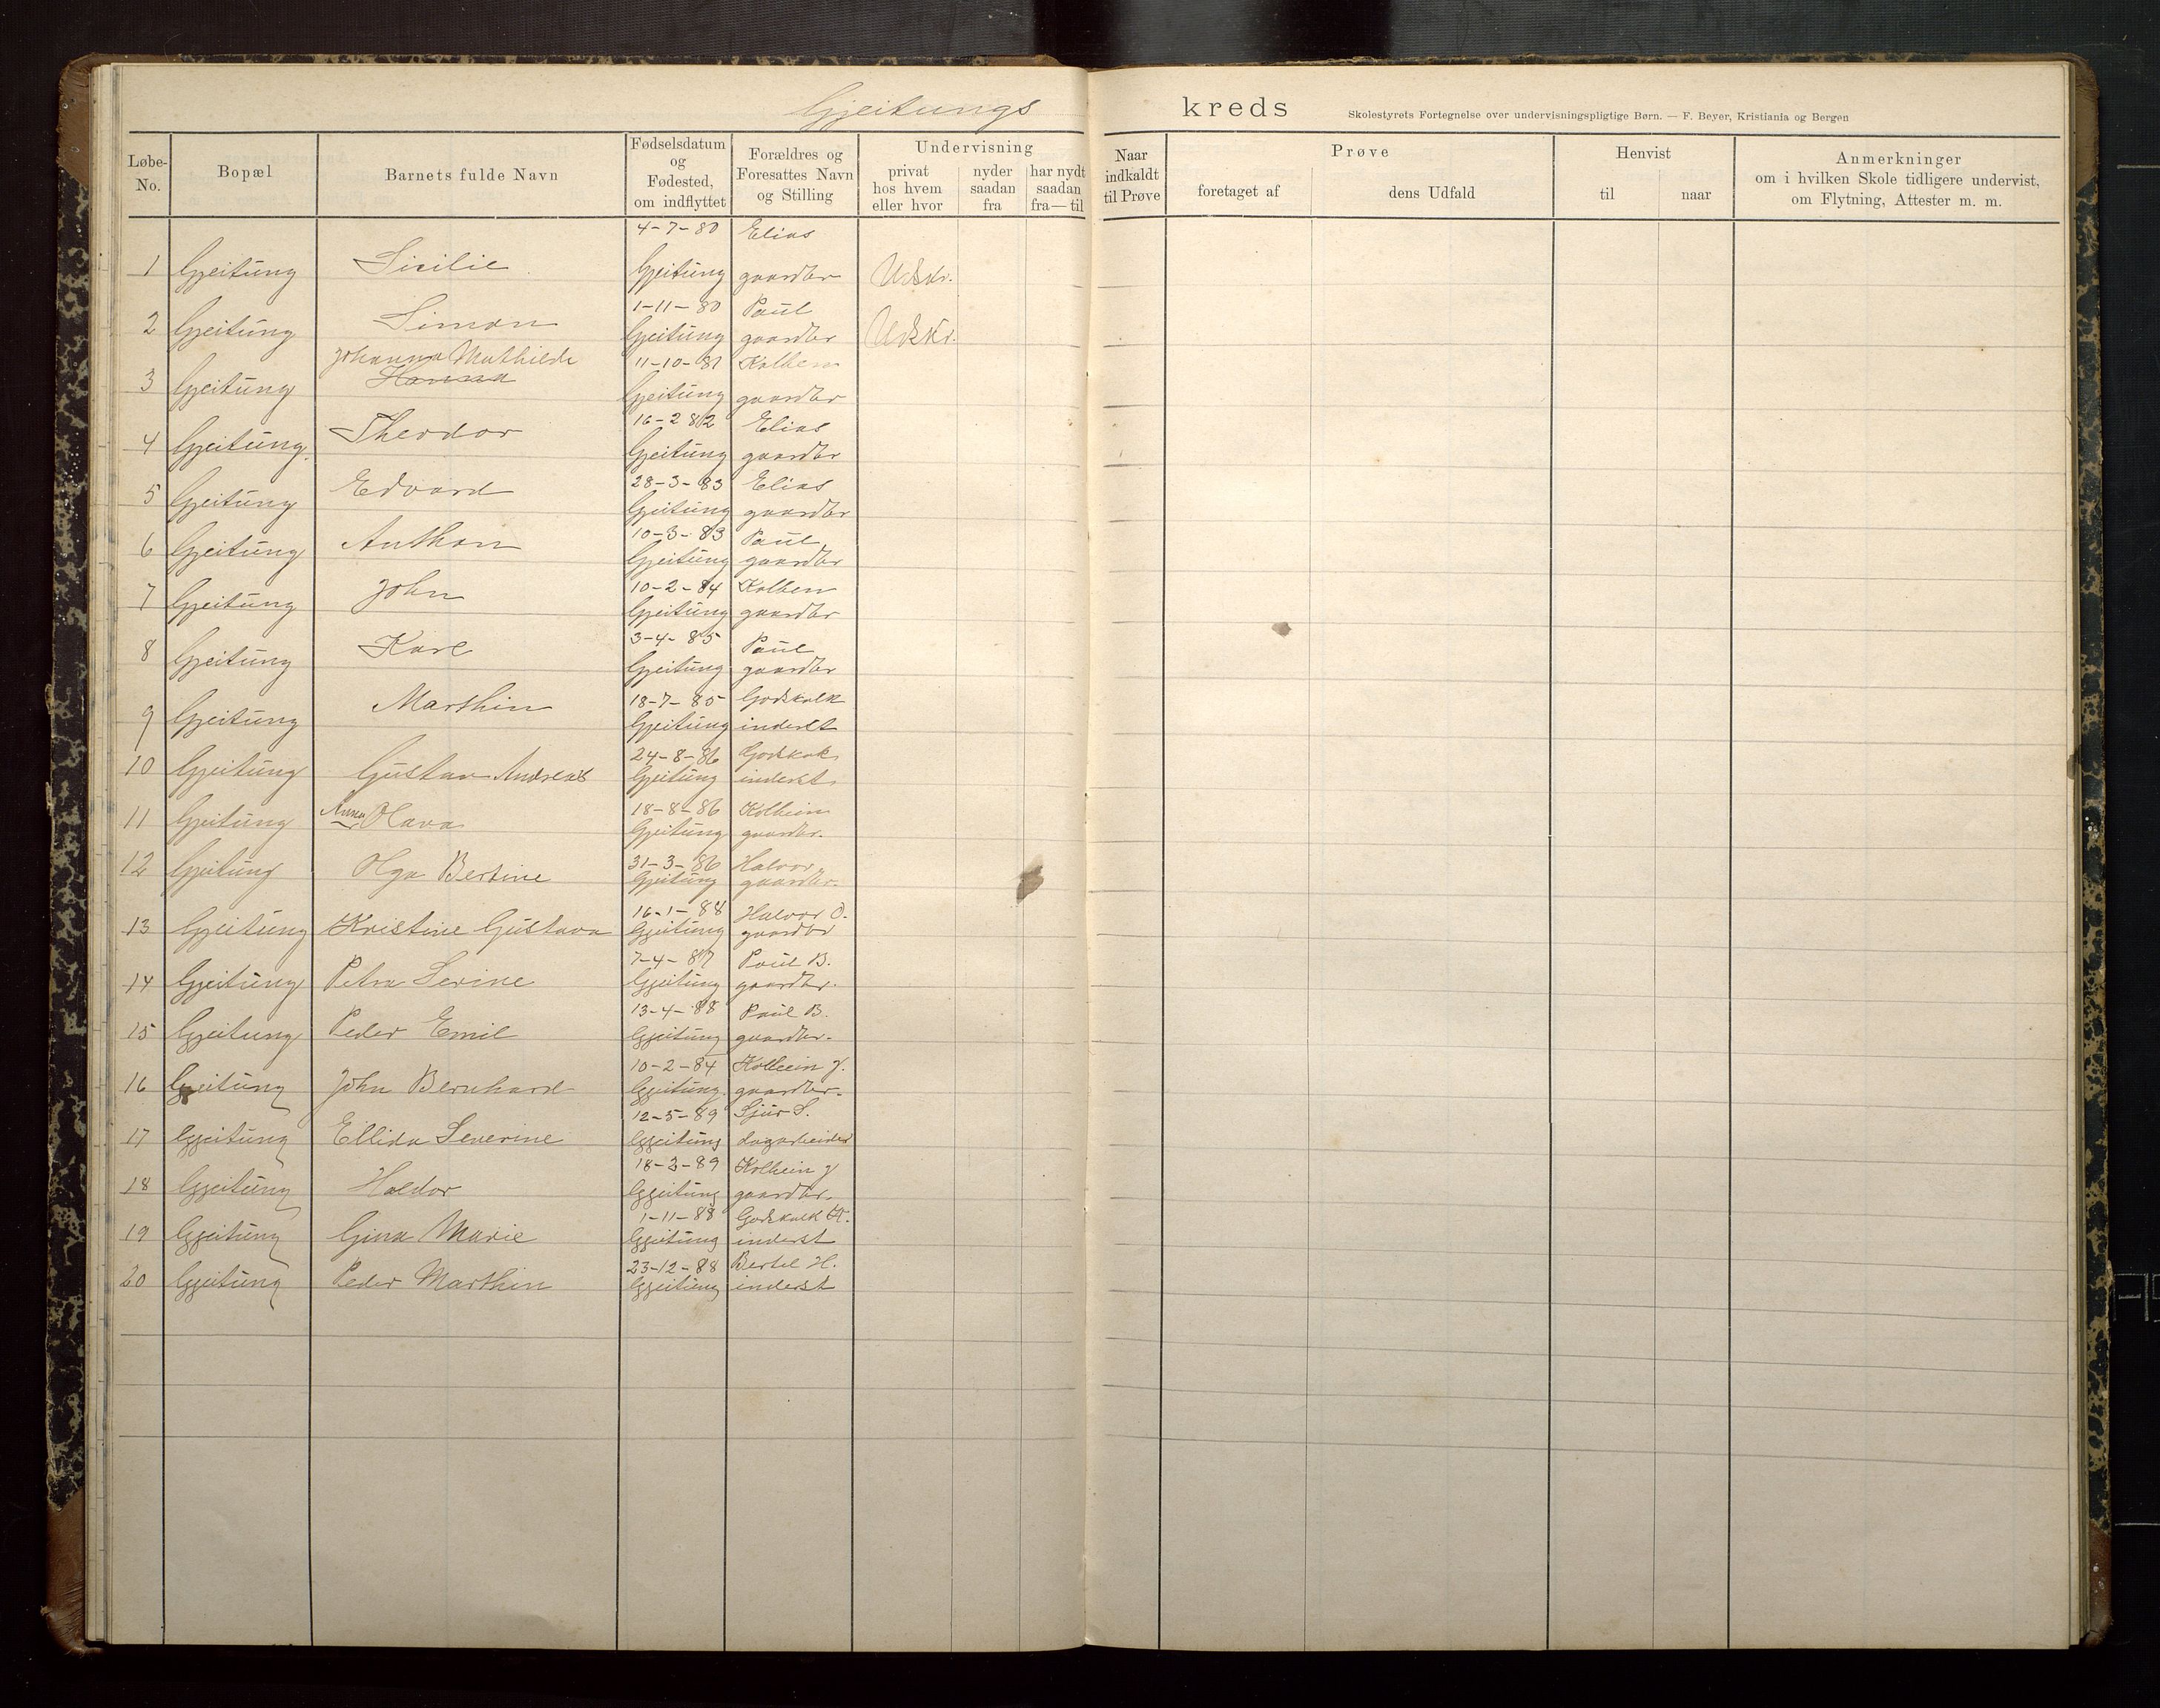 Gjeitungs kreds
Skolestyrets Fortegnelse over undervisningspligtige Børn. — F. Beyer, Kristiania og Bergen
Løbe-No. Bopæl Barnets fulde Navn Fødselsdatum og Fødested, om indflyttet Forældres og Foresattes Navn og Stilling Undervisning privat hos hvem eller hvor nyder saadan fra har nydt saadan fra—til Naar indkaldt til Prøve Prøve foretaget af dens Udfald Henvist til naar Anmerkninger om i hvilken Skole tidligere undervist, om Flytning, Attester m. m.
4-7-80 Elias
1 Gjeitung Sicilie Gjeitung gaardbr Udskr.
1-11-80 Paul
2 Gjeitung Simon Gjeitung gaardbr Udskr.
Johanna Mathilde 11-10-81 Kolben
3 Gjeitung Hanna Gjeitung gaardbr
16-2 82 Elias
4 Gjeitung. Theodor Gjeitung gaardbr
28-3-83 Elias
5 Gjeitung Edvard Gjeitung gaardbr
10-3-83 Paul
6 Gjeitung Anthon Gjeitung gaardbr
10-2-84 Kolben
7 Gjeitung John Gjeitung gaardbr
3-4-85 Paul
8 Gjeitung Karl Gjeitung gaardbr
18-7-85 Godskalk
9 Gjeitung Marthin Gjeitung inderst
24-8-86 Godskalk
10 Gjeitung Gustav Andreas Gjeitung inderst
18-8-86 Kolbein
11 Gjeitung Anna Olava Gjeitung gaardbr.
31-3-86 Halvor
12 Gjeitung Olga Bertine Gjeitung gaardbr.
16-1-88 Halvor O.
13 Gjeitung Kristine Gustava Gjeitung gaardbr
7-4-87 Paul B.
14 Gjeitung Petra Serine Gjeitung gaardbr.
13-4-88 Paul B.
15 Gjeitung Peder Emil Gjeitung gaardbr.
10-2-84 Kolbein J.
16 Gjeitung John Bernhard Gjeitung. gaardbr.
12-5-89 Sjur S.
17 Gjeitung Ellida Severine Gjeitung dagarbeider
18-2-89 Kolbein J
18 Gjeitung Haldor Gjeitung gaardbr.
1-11-88 Godskalk
19 Gjeitung Gina Marie Gjeitung inderst
23-12-88 Bertel H.
20 Gjeitung Peder Marthin Gjeitung inderst